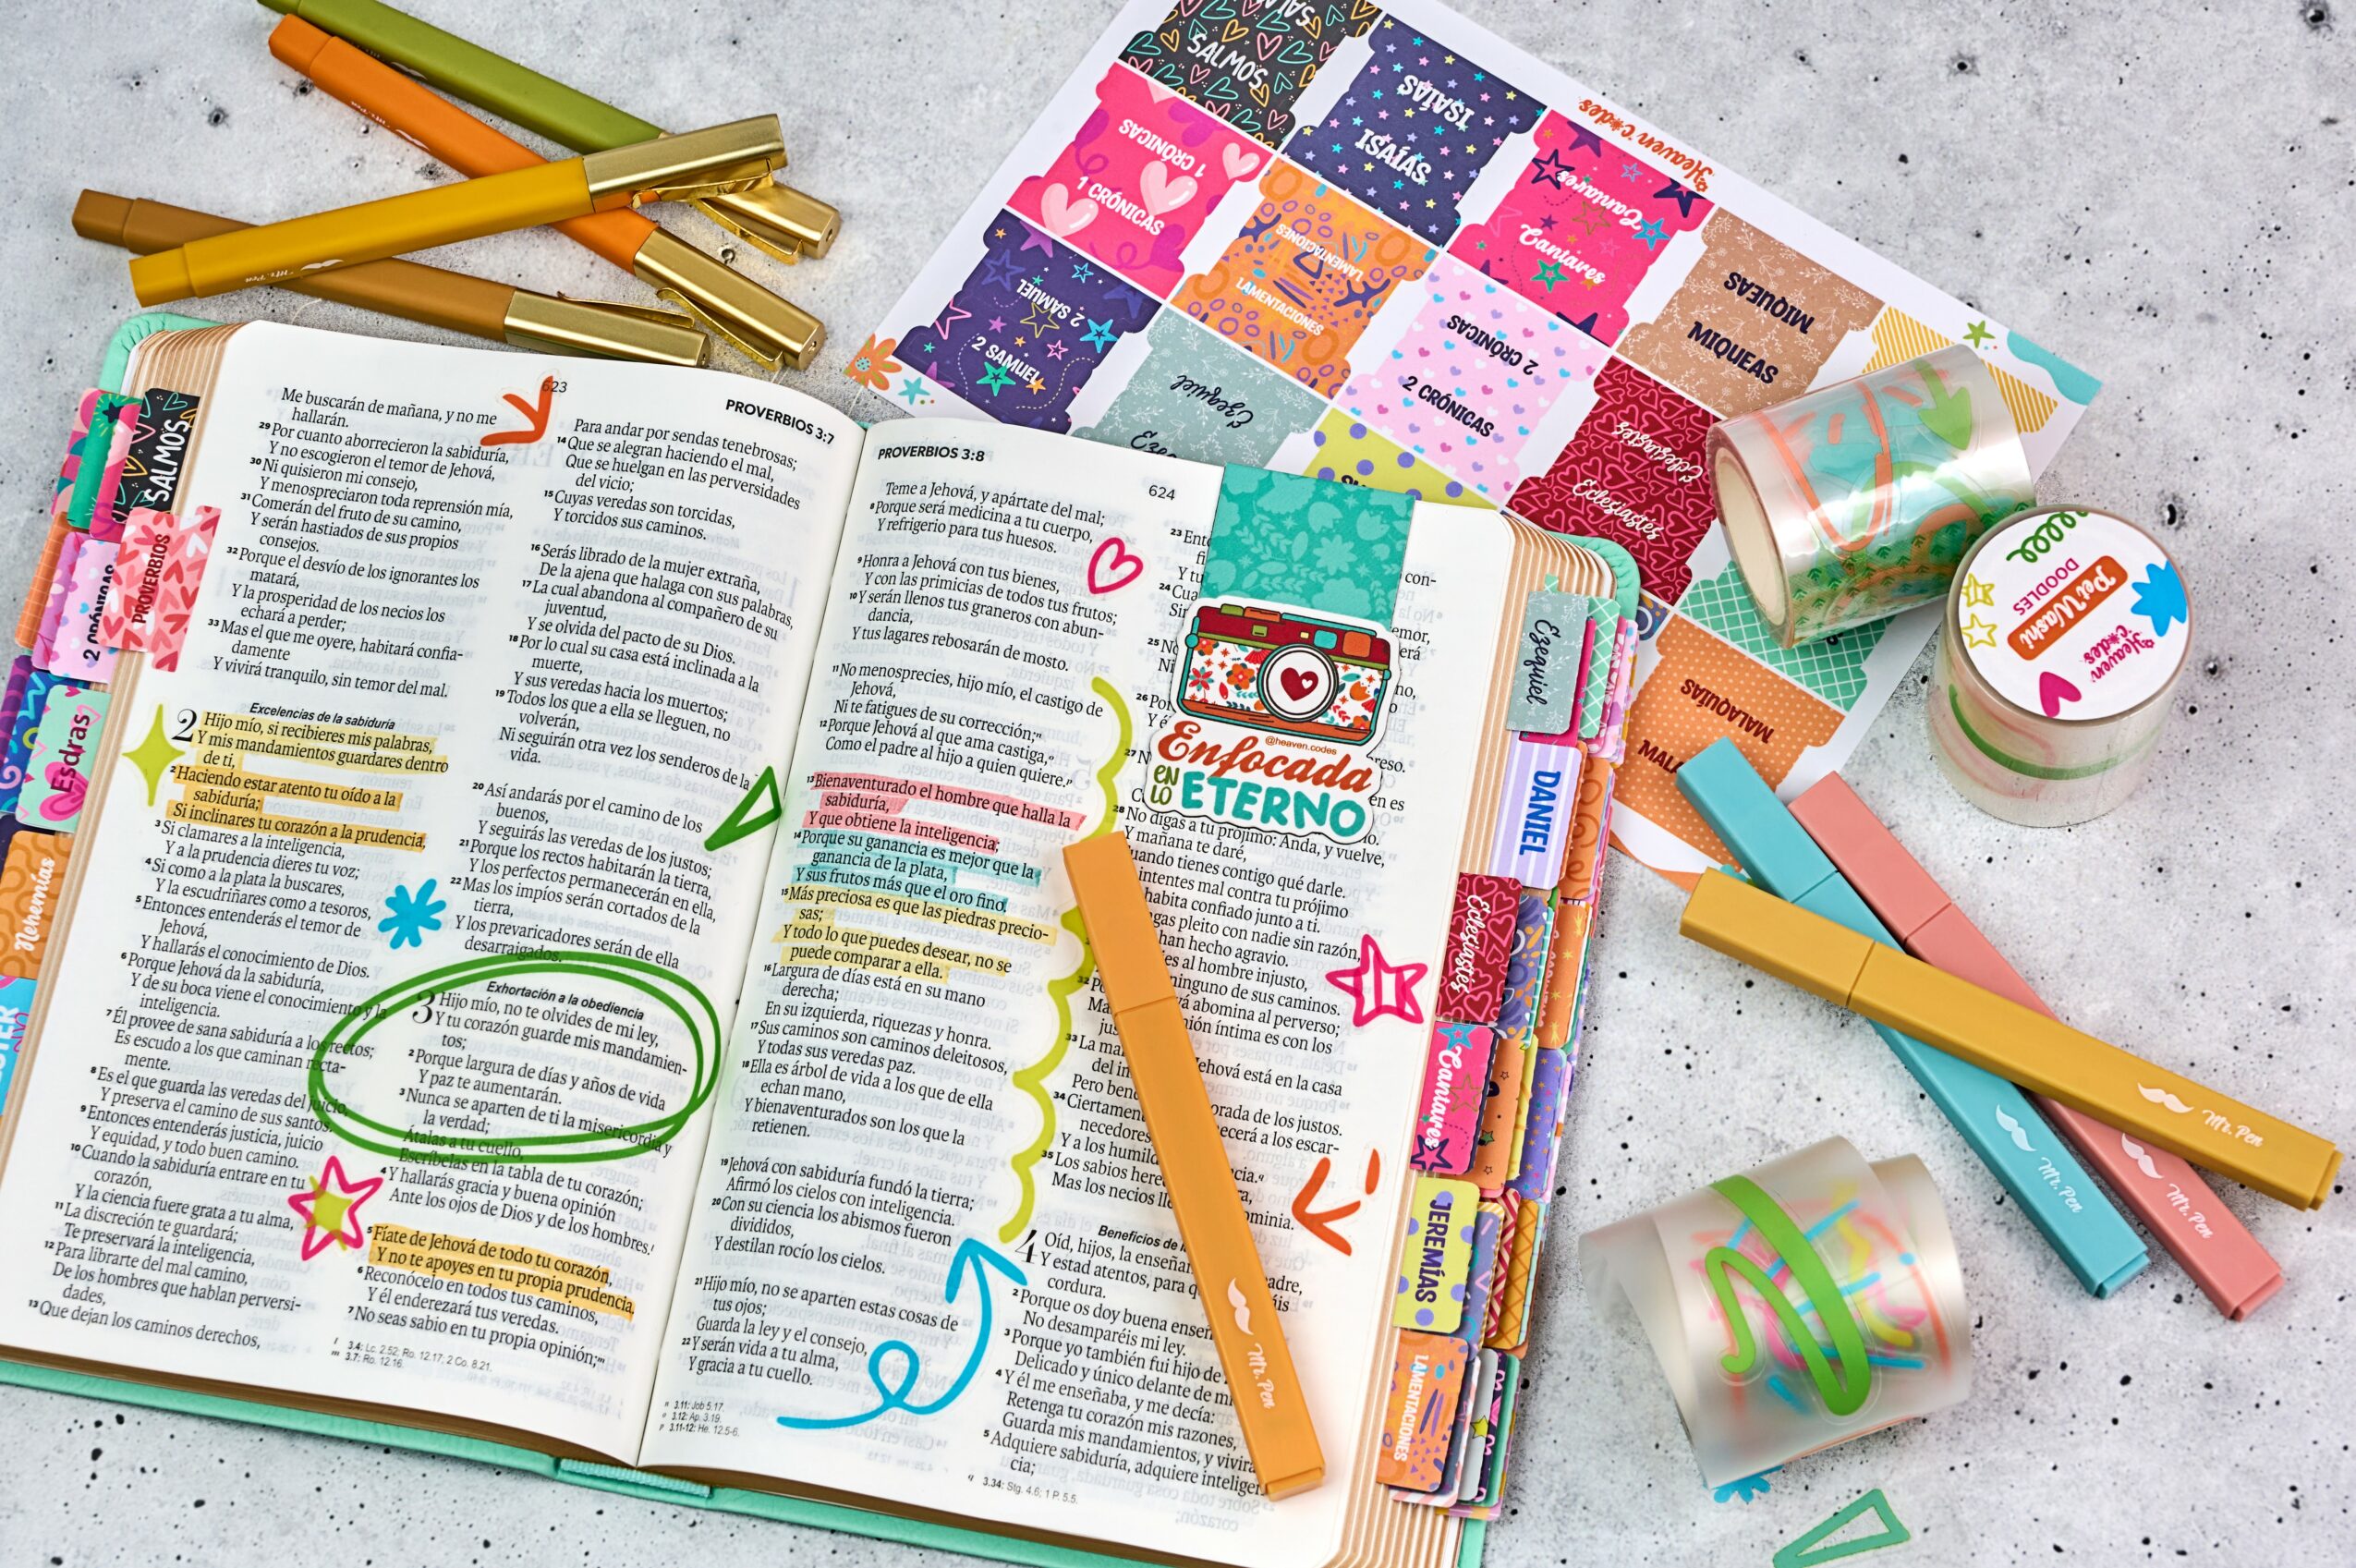 623
PROVERBIOS 3:7
Me buscarán de mañana, y no me
hallarán.
29 Por cuanto aborrecieron la sabiduría,
Y no escogieron el temor de Jehová,
30 Ni quisieron mi consejo,
Y menospreciaron toda reprensión mía,
31 Comerán del fruto de su camino,
Y serán hastiados de sus propios
consejos.
32 Porque el desvío de los ignorantes los
matará,
Y la prosperidad de los necios los
echará a perder;
33 Mas el que me oyere, habitará confia-
damente
Y vivirá tranquilo, sin temor del mal.
Excelencias de la sabiduría
2 Hijo mío, si recibieres mis palabras,
Y mis mandamientos guardares dentro
de ti,
2 Haciendo estar atento tu oído a la
sabiduría;
Si inclinares tu corazón a la prudencia,
3 Si clamares a la inteligencia,
Y a la prudencia dieres tu voz;
4 Si como a la plata la buscares,
Y la escudriñares como a tesoros,
5 Entonces entenderás el temor de
Jehová,
Y hallarás el conocimiento de Dios.
6 Porque Jehová da la sabiduría,
Y de su boca viene el conocimiento y la
inteligencia.
7 Él provee de sana sabiduría a los rectos;
Es escudo a los que caminan recta-
mente.
8 Es el que guarda las veredas del juicio,
Y preserva el camino de sus santos.
9 Entonces entenderás justicia, juicio
Y equidad, y todo buen camino.
10 Cuando la sabiduría entrare en tu
corazón,
Y la ciencia fuere grata a tu alma,
11 La discreción te guardará;
Te preservará la inteligencia,
12 Para librarte del mal camino,
De los hombres que hablan perversi-
dades,
13 Que dejan los caminos derechos,
Para andar por sendas tenebrosas;
14 Que se alegran haciendo el mal,
Que se huelgan en las perversidades
del vicio;
15 Cuyas veredas son torcidas,
Y torcidos sus caminos.
16 Serás librado de la mujer extraña,
De la ajena que halaga con sus palabras,
17 La cual abandona al compañero de su
juventud,
Y se olvida del pacto de su Dios.
18 Por lo cual su casa está inclinada a la
muerte,
Y sus veredas hacia los muertos;
19 Todos los que a ella se lleguen, no
volverán,
Ni seguirán otra vez los senderos de la
vida.
20 Así andarás por el camino de los
buenos,
Y seguirás las veredas de los justos;
21 Porque los rectos habitarán la tierra,
Y los perfectos permanecerán en ella,
22 Mas los impíos serán cortados de la
tierra,
Y los prevaricadores serán de ella
desarraigados.
Exhortación a la obediencia
3 Hijo mío, no te olvides de mi ley,
Y tu corazón guarde mis mandamien-
tos;
2 Porque largura de días y años de vida
Y paz te aumentarán.
3 Nunca se aparten de ti la misericordia y
la verdad;
Átalas a tu cuello,
Escríbelas en la tabla de tu corazón;
4 Y hallarás gracia y buena opinión
Ante los ojos de Dios y de los hombres.
5 Fíate de Jehová de todo tu corazón,
Y no te apoyes en tu propia prudencia.
6 Reconócelo en todos tus caminos,
Y él enderezará tus veredas.
7 No seas sabio en tu propia opinión;
3.4: Lc. 2.52; Ro. 12.17; 2 Co. 8.21.
3.7: Ro. 12.16.
PROVERBIOS 3:8
624
Teme a Jehová, y apártate del mal;
8 Porque será medicina a tu cuerpo,
Y refrigerio para tus huesos.
9 Honra a Jehová con tus bienes,
Y con las primicias de todos tus frutos;
10 Y serán llenos tus graneros con abun-
dancia,
Y tus lagares rebosarán de mosto.
11 No menosprecies, hijo mío, el castigo de
Jehová,
Ni te fatigues de su corrección;
12 Porque Jehová al que ama castiga,
Como el padre al hijo a quien quiere.
13 Bienaventurado el hombre que halla la
sabiduría,
Y que obtiene la inteligencia;
14 Porque su ganancia es mejor que la
ganancia de la plata,
Y sus frutos más que el oro fino.
15 Más preciosa es que las piedras precio-
sas;
Y todo lo que puedes desear, no se
puede comparar a ella.
16 Largura de días está en su mano
derecha;
En su izquierda, riquezas y honra.
17 Sus caminos son caminos deleitosos,
Y todas sus veredas paz.
18 Ella es árbol de vida a los que de ella
echan mano,
Y bienaventurados son los que la
retienen.
19 Jehová con sabiduría fundó la tierra;
Afirmó los cielos con inteligencia.
20 Con su ciencia los abismos fueron
divididos,
Y destilan rocío los cielos.
21 Hijo mío, no se aparten estas cosas de
tus ojos;
Guarda la ley y el consejo,
22 Y serán vida a tu alma,
Y gracia a tu cuello.
3.11: Job 5.17.
3.12: Ap. 3.19.
3.11-12: He. 12.5-6.
23
24
25
26
27
28 No digas a tu prójimo: Anda, y vuelve,
Y mañana te daré,
intentes mal contra tu prójimo
habita confiado junto a ti.
pleito con nadie sin razón,
han hecho agravio.
al hombre injusto,
ninguno de sus caminos.
32
abomina al perverso;
íntima es con los
33 La
Jehová está en la casa
Pero
de los justos.
34 Ciertamente
Y a los
35 Los sabios
Mas los necios
Beneficios de
4 Oíd, hijos, la
Y estad atentos, para
cordura.
2 Porque os doy buena
No desamparéis mi ley.
3 Porque yo también fui hijo de
Delicado y único delante de
4 Y él me enseñaba, y me decía:
Retenga tu corazón mis razones,
Guarda mis mandamientos, y
5 Adquiere sabiduría, adquiere
cia;
3.34: Stg. 4.6; 1 P. 5.5.
@heaven.codes
Enfocada
EN LO
ETERNO
SALMOS
PROVERBIOS
2 CRÓNICAS
Esdras
Nehemías
Ezequiel
DANIEL
Eclesiastés
Cantares
JEREMÍAS
LAMENTACIONES
Heaven c*des
SALMOS
ISAÍAS
ISAÍAS
Cantares
Cantares
MIQUEAS
MIQUEAS
1 CRÓNICAS
1 CRÓNICAS
LAMENTACIONES
LAMENTACIONES
2 CRÓNICAS
2 CRÓNICAS
Eclesiastés
Eclesiastés
2 SAMUEL
2 SAMUEL
Ezequiel
MALAQUÍAS
Heaven c*des
Pet Washi
DOODLES
Mr. Pen
Mr. Pen
Mr. Pen
Mr. Pen
Mr. Pen